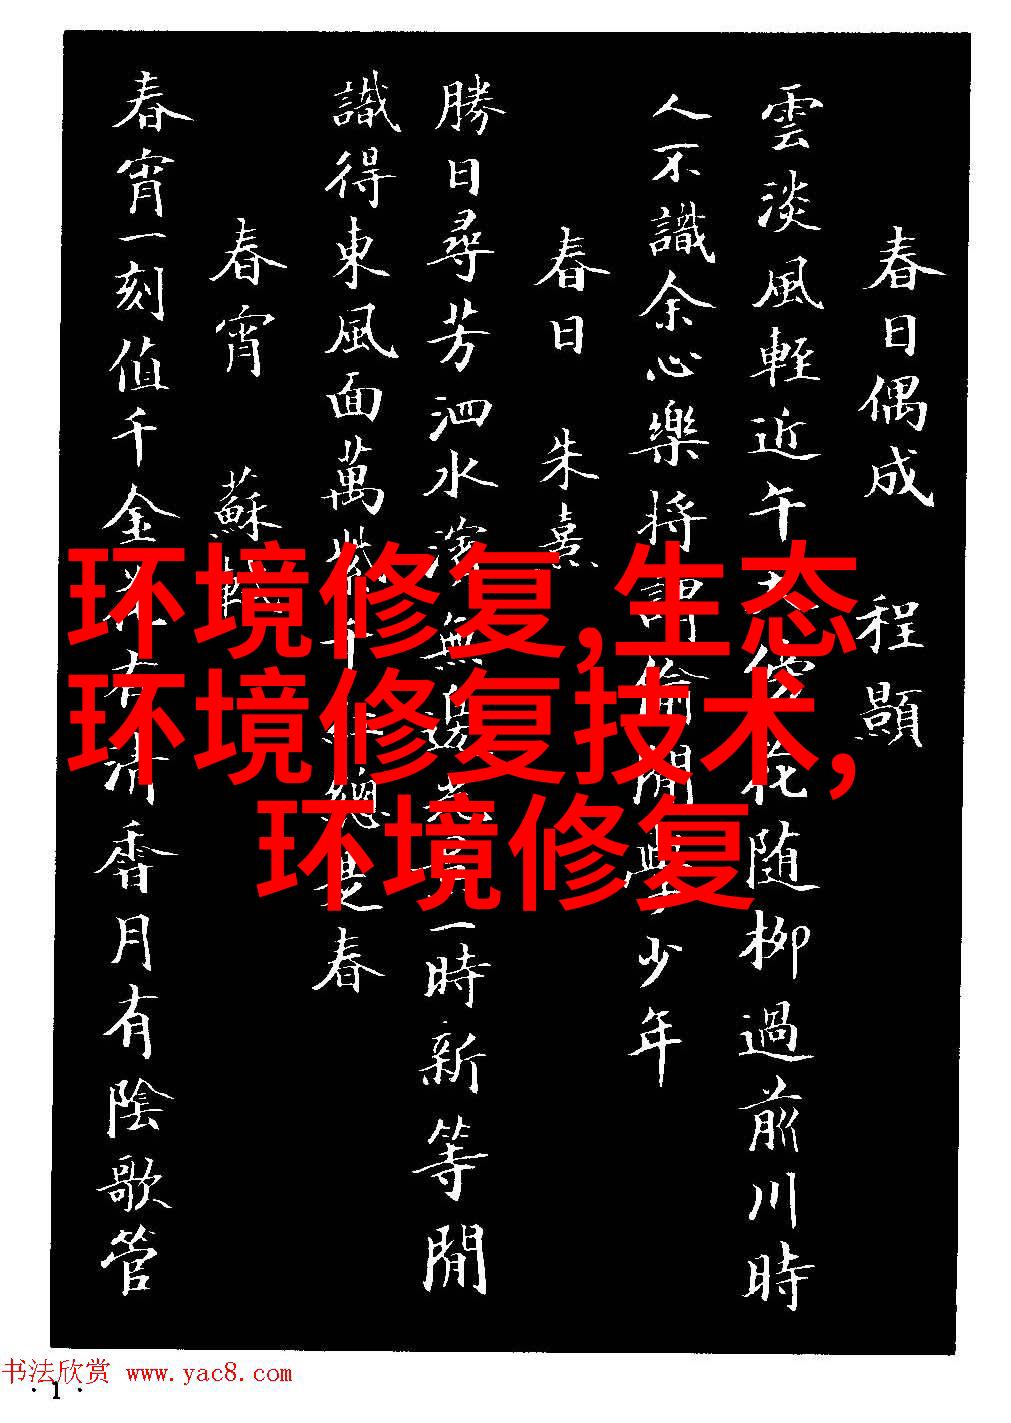 春日偶成 程顥
雲淡風輕近午天傍花随柳過前川時
人不識余心樂將謂偷閒學少年
春日 朱熹
勝日尋芳泗水濱無邊光景一時新等閒
識得東風面萬紫千紅總是春
春宵 蘇軾
春宵一刻值千金花有清香月有陰歌管
环境修复,生态
环境修复技术,
环境修复
书法欣赏 www.yac8.com
·1·